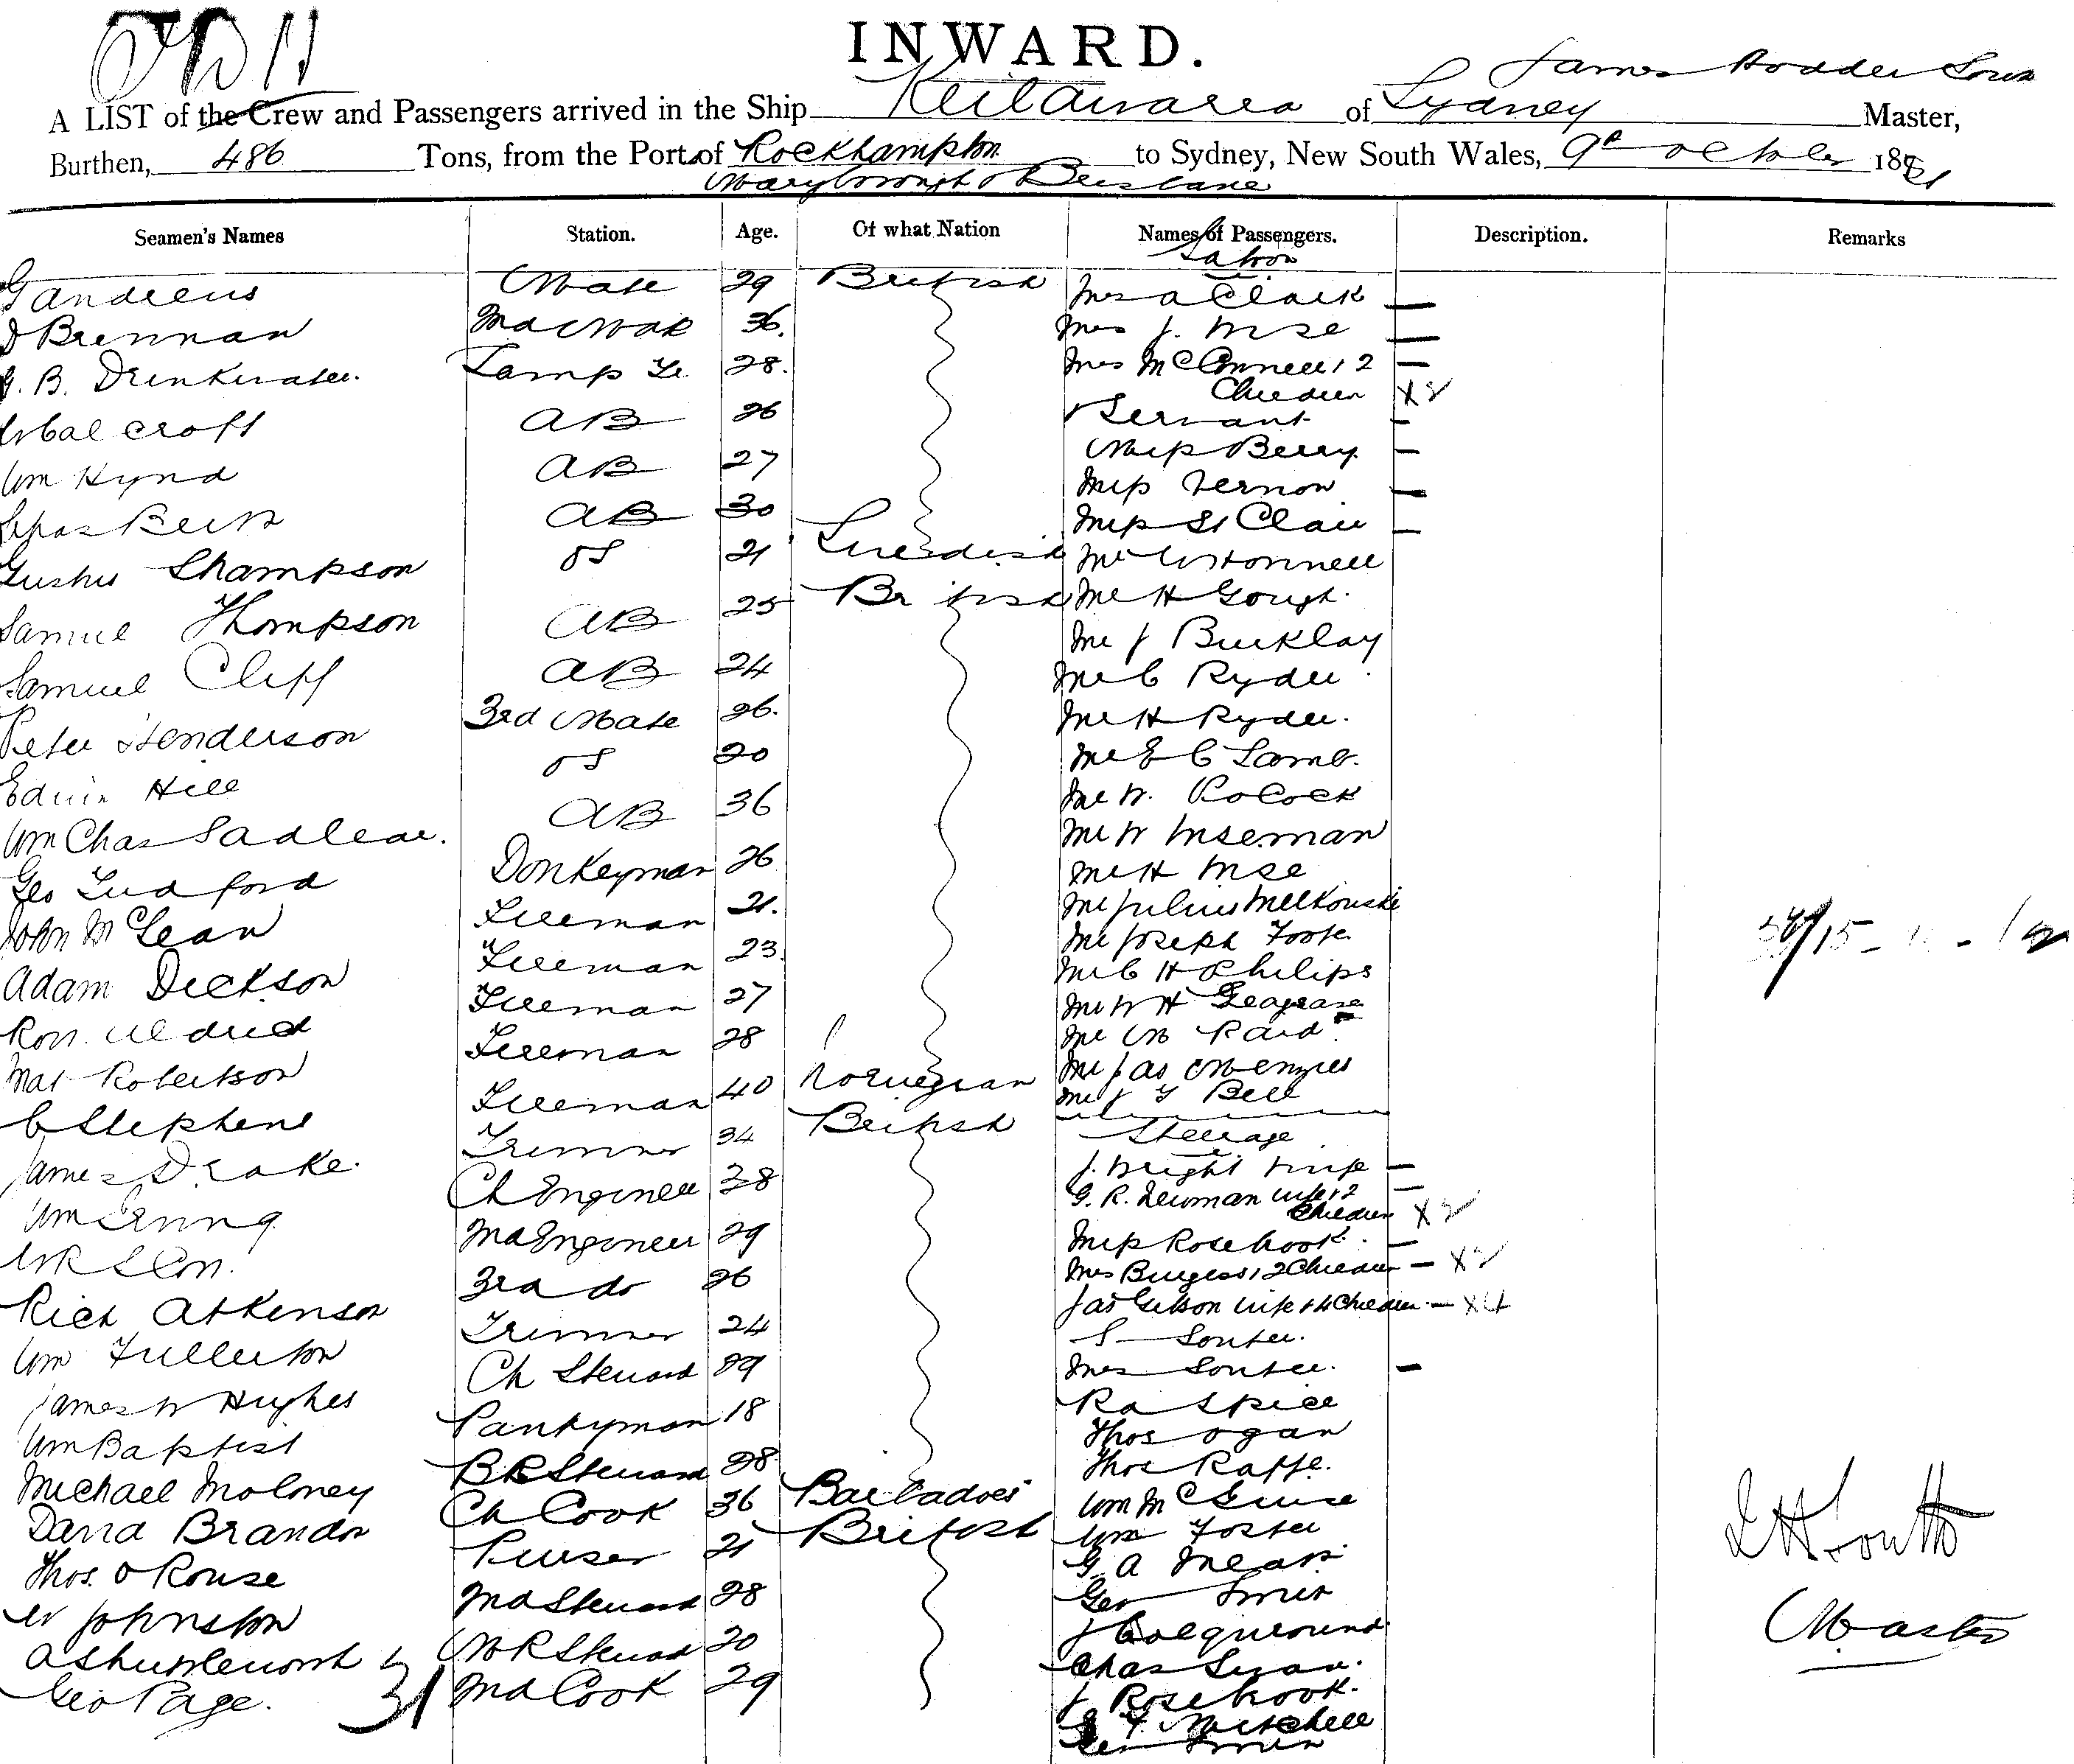 INWARD.
A LIST of the Crew and Passengers arrived in the Ship Keilawarra of Sydney James Hodder South Master,
Burthen, 486 Tons, from the Port of Rockhampton to Sydney, New South Wales, 9th October 1881
Maryborough & Brisbane
Seamen's Names Station. Age. Of what Nation Names of Passengers. Description. Remarks
Saloon
G Andrews Mate 29 British Mrs A Clark
D Brennan 2nd Mate 36. Mrs J. Wise
B. Drinkwater. Lamp Tr. 28. Mrs McConnell & 2
Children X2
croft AB 26 & Servant
Wm Kynd AB 27 Miss Berry
AB 30 Miss Vernon
Miss St Clair
Gustus Thampson OS 21 Swedish Mr W Honnell
Samuel Thompson AB 25 British Mr H Gough.
Mr J Buckley
Samuel Cliff AB 24 Mr C Ryder
Peter Henderson 3rd Mate 26. Mr H Ryder.
Edwin Hill OS 20 Mr E C Lamb.
Wm Chas Sadlear. AB 36 Mr W. Pocock
Mr W Wiseman
Geo Ludford Donkeyman 26 Mr H Wise
John McLean Fireman 21. Mr Julius
Mr Joseph Foote
Adam Dickson Fireman 23. Mr C H Philips
Ron. Fireman 27 Mr W H
Mat Robertson Fireman 28 Mr M Raid
Mr Jas Menzies
C Stephens Fireman 40 Norwegian Mr J G Bell
James Drake. Trimmer 34 British Steerage
Ch Engineer 38 J. Wright wife
Wm G. R. Newman wife & 2
Children X2
2nd Engineer 29 Miss Rosebrook.
3rd do 26 Mrs Burgess & 2 Children X2
Rich Atkinson Trimmer 24 Jas Gibson wife & 4 Children X4
S Souter.
Wm Fullerton Ch Steward 29 Mrs Souter.
James W Hughes Pantryman 18 R A Spice
Wm Baptist BR Steward 28 Thos Ogan
Thos Raffe.
Michael Moloney Ch Cook 36 Barbadoes Wm McGuire
David Brandon Purser 21 British Wm Foster
Thos. O Rouse 2nd Steward 28 G A
Geo
W Johnston MR Steward 20 J Colquhound
A Shuttleworth Chas Swan.
Geo Page. 31 2nd Cook 29 J Rosebrook.
Mitchell
J H South
Master